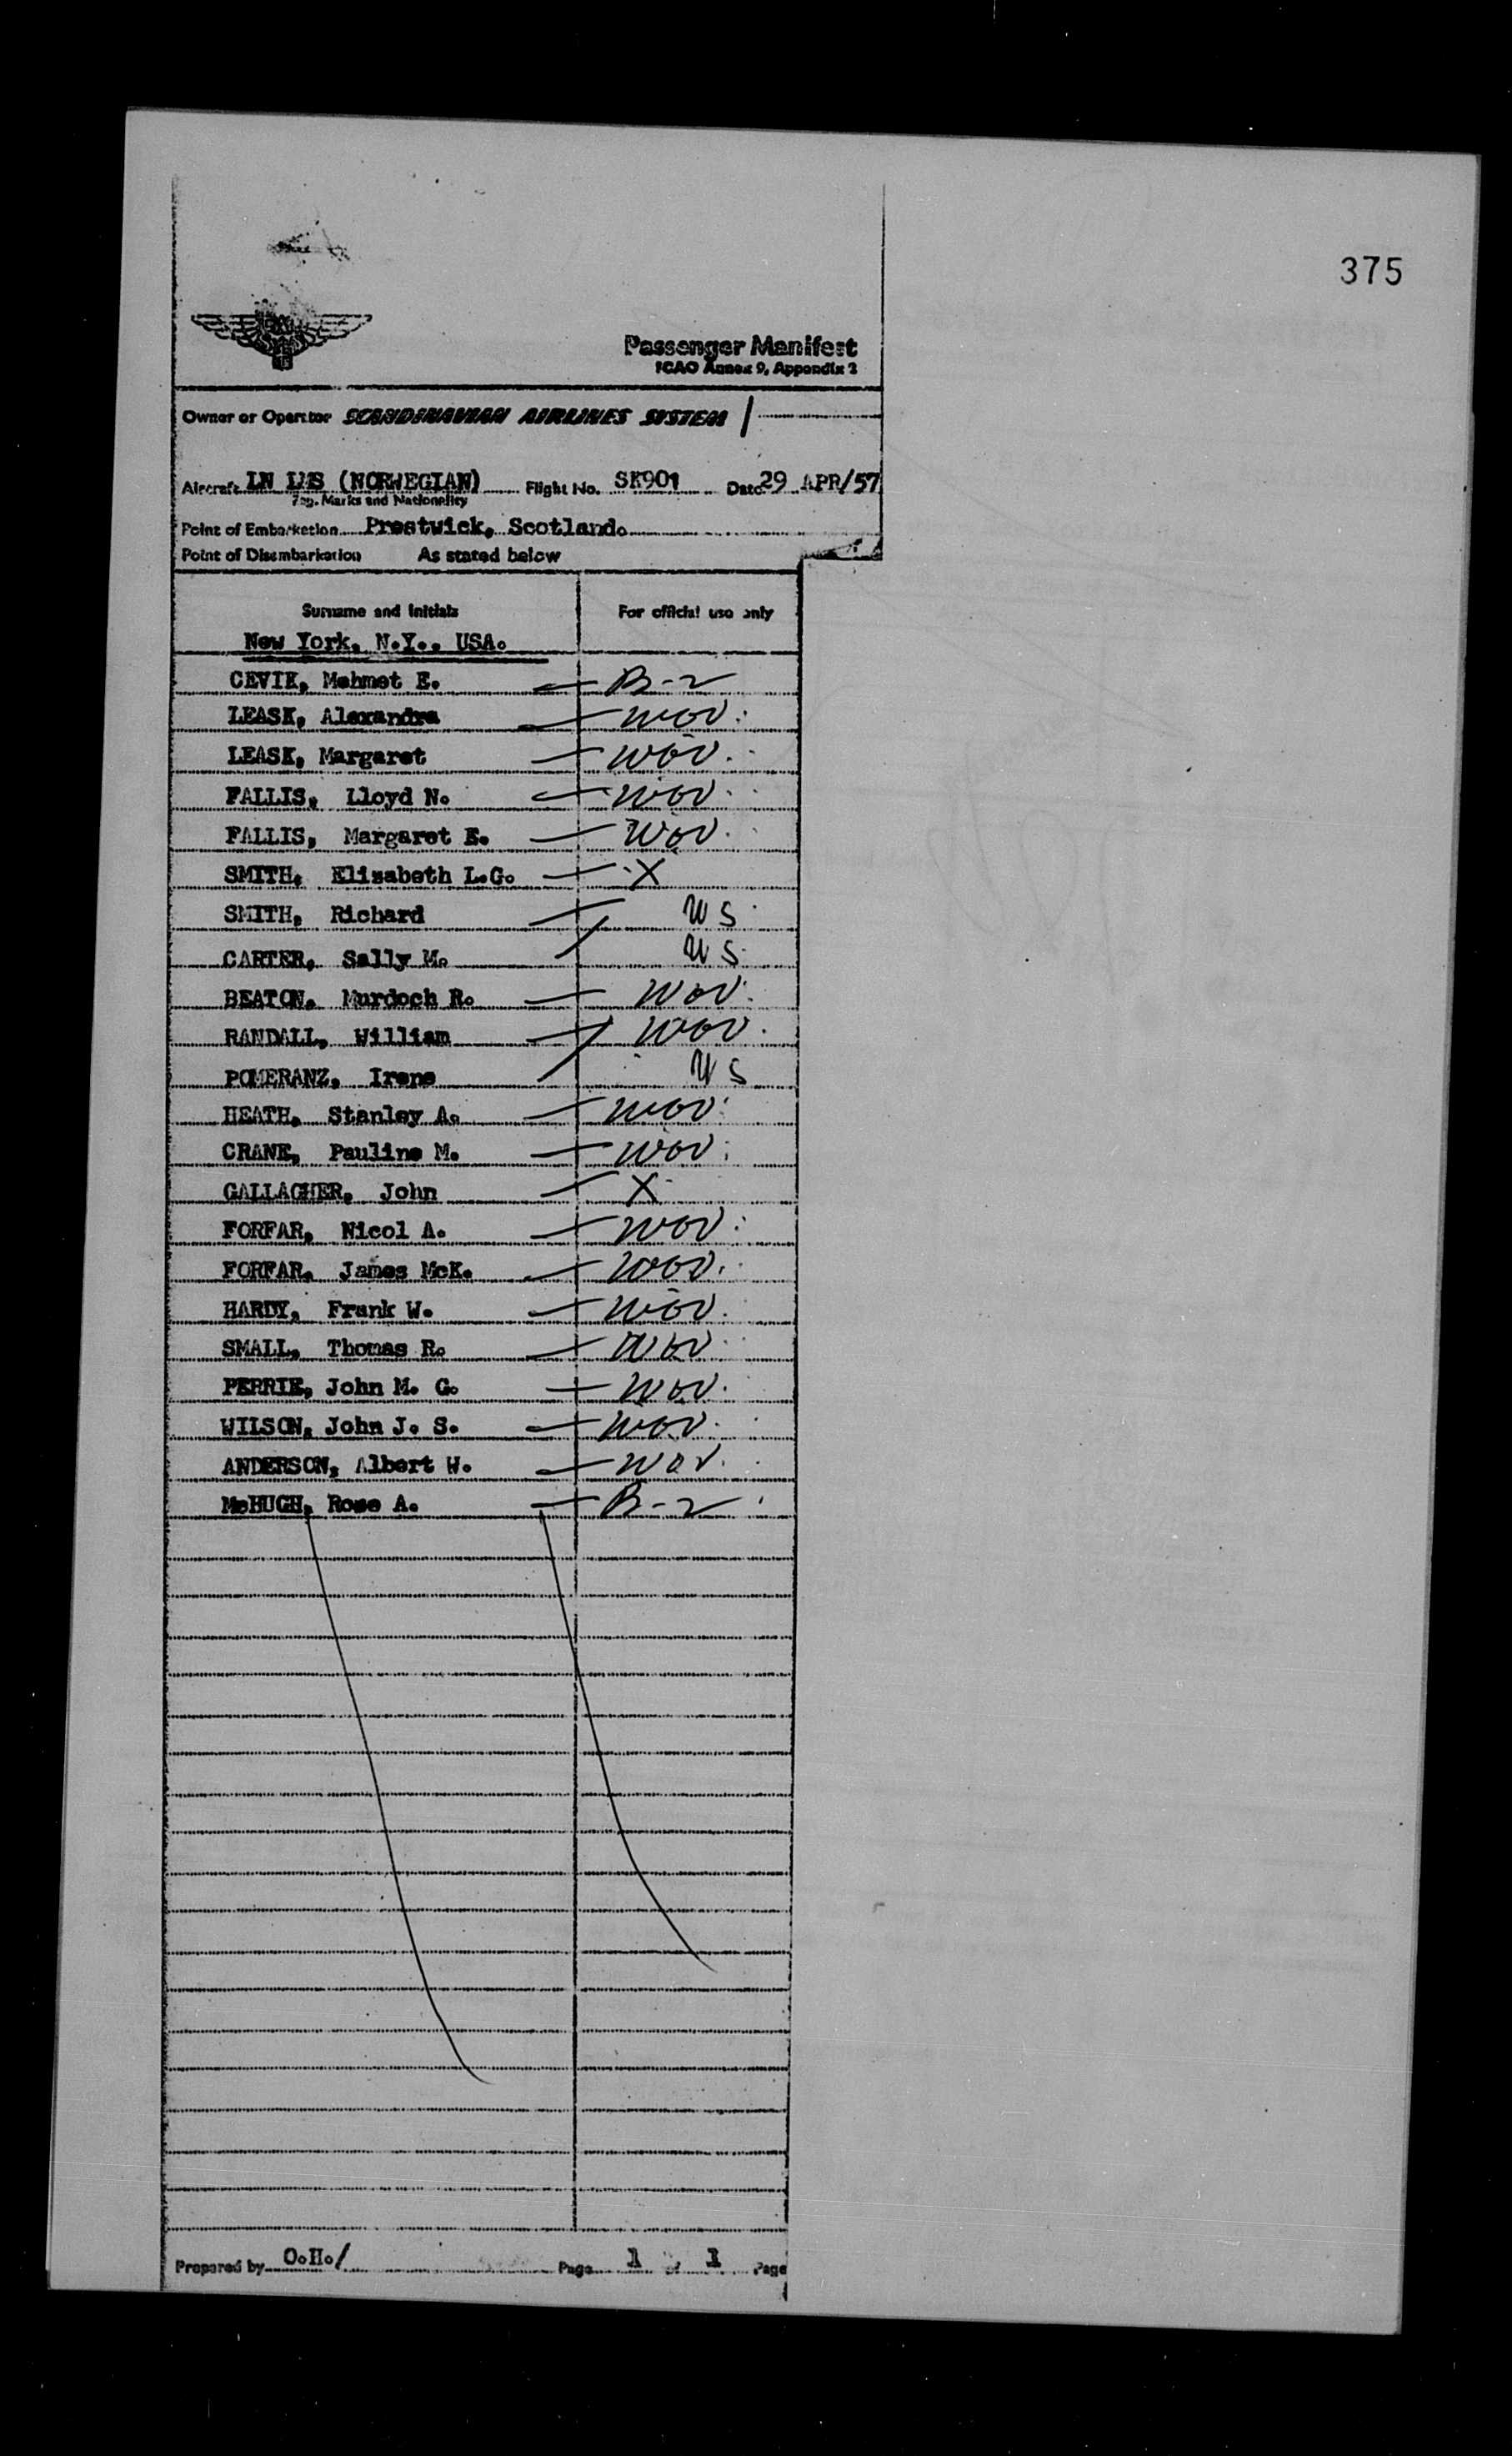 375
Passenger Manifest
ICAO Annex 9, Appendix 2
Owner or Operator SCANDINAVIAN AIRLINES SYSTEM
Aircraft LN (NORWEGIAN) Flight No. SK901 Date 29 APR/57
Reg. Marks and Nationality
Point of Embarkation Prestwick, Scotland.
Point of Disembarkation As stated below
Surname and initials For official use only
New York, N.Y., USA.
CEVIK, Mehmet E. B-2
LEASK, Alexandra
LEASK, Margaret
FALLIS, Lloyd N.
FALLIS, Margaret E.
SMITH, Elisabeth L.G. X
SMITH, Richard US
CARTER, Sally M. US
BEATON, Murdoch R.
RANDALL, William
POMERANZ, Irene US
HEATH, Stanley A.
CRANE, Pauline M.
GALLAGHER, John X
FORFAR, Nicol A.
FORFAR, James McK.
HARDY, Frank W.
SMALL, Thomas R.
PERRIE, John M. G.
WILSON, John J. S.
ANDERSON, Albert W.
McHUGH, Rose A. B-2
Prepared by O.H./ Page 1 1 Page